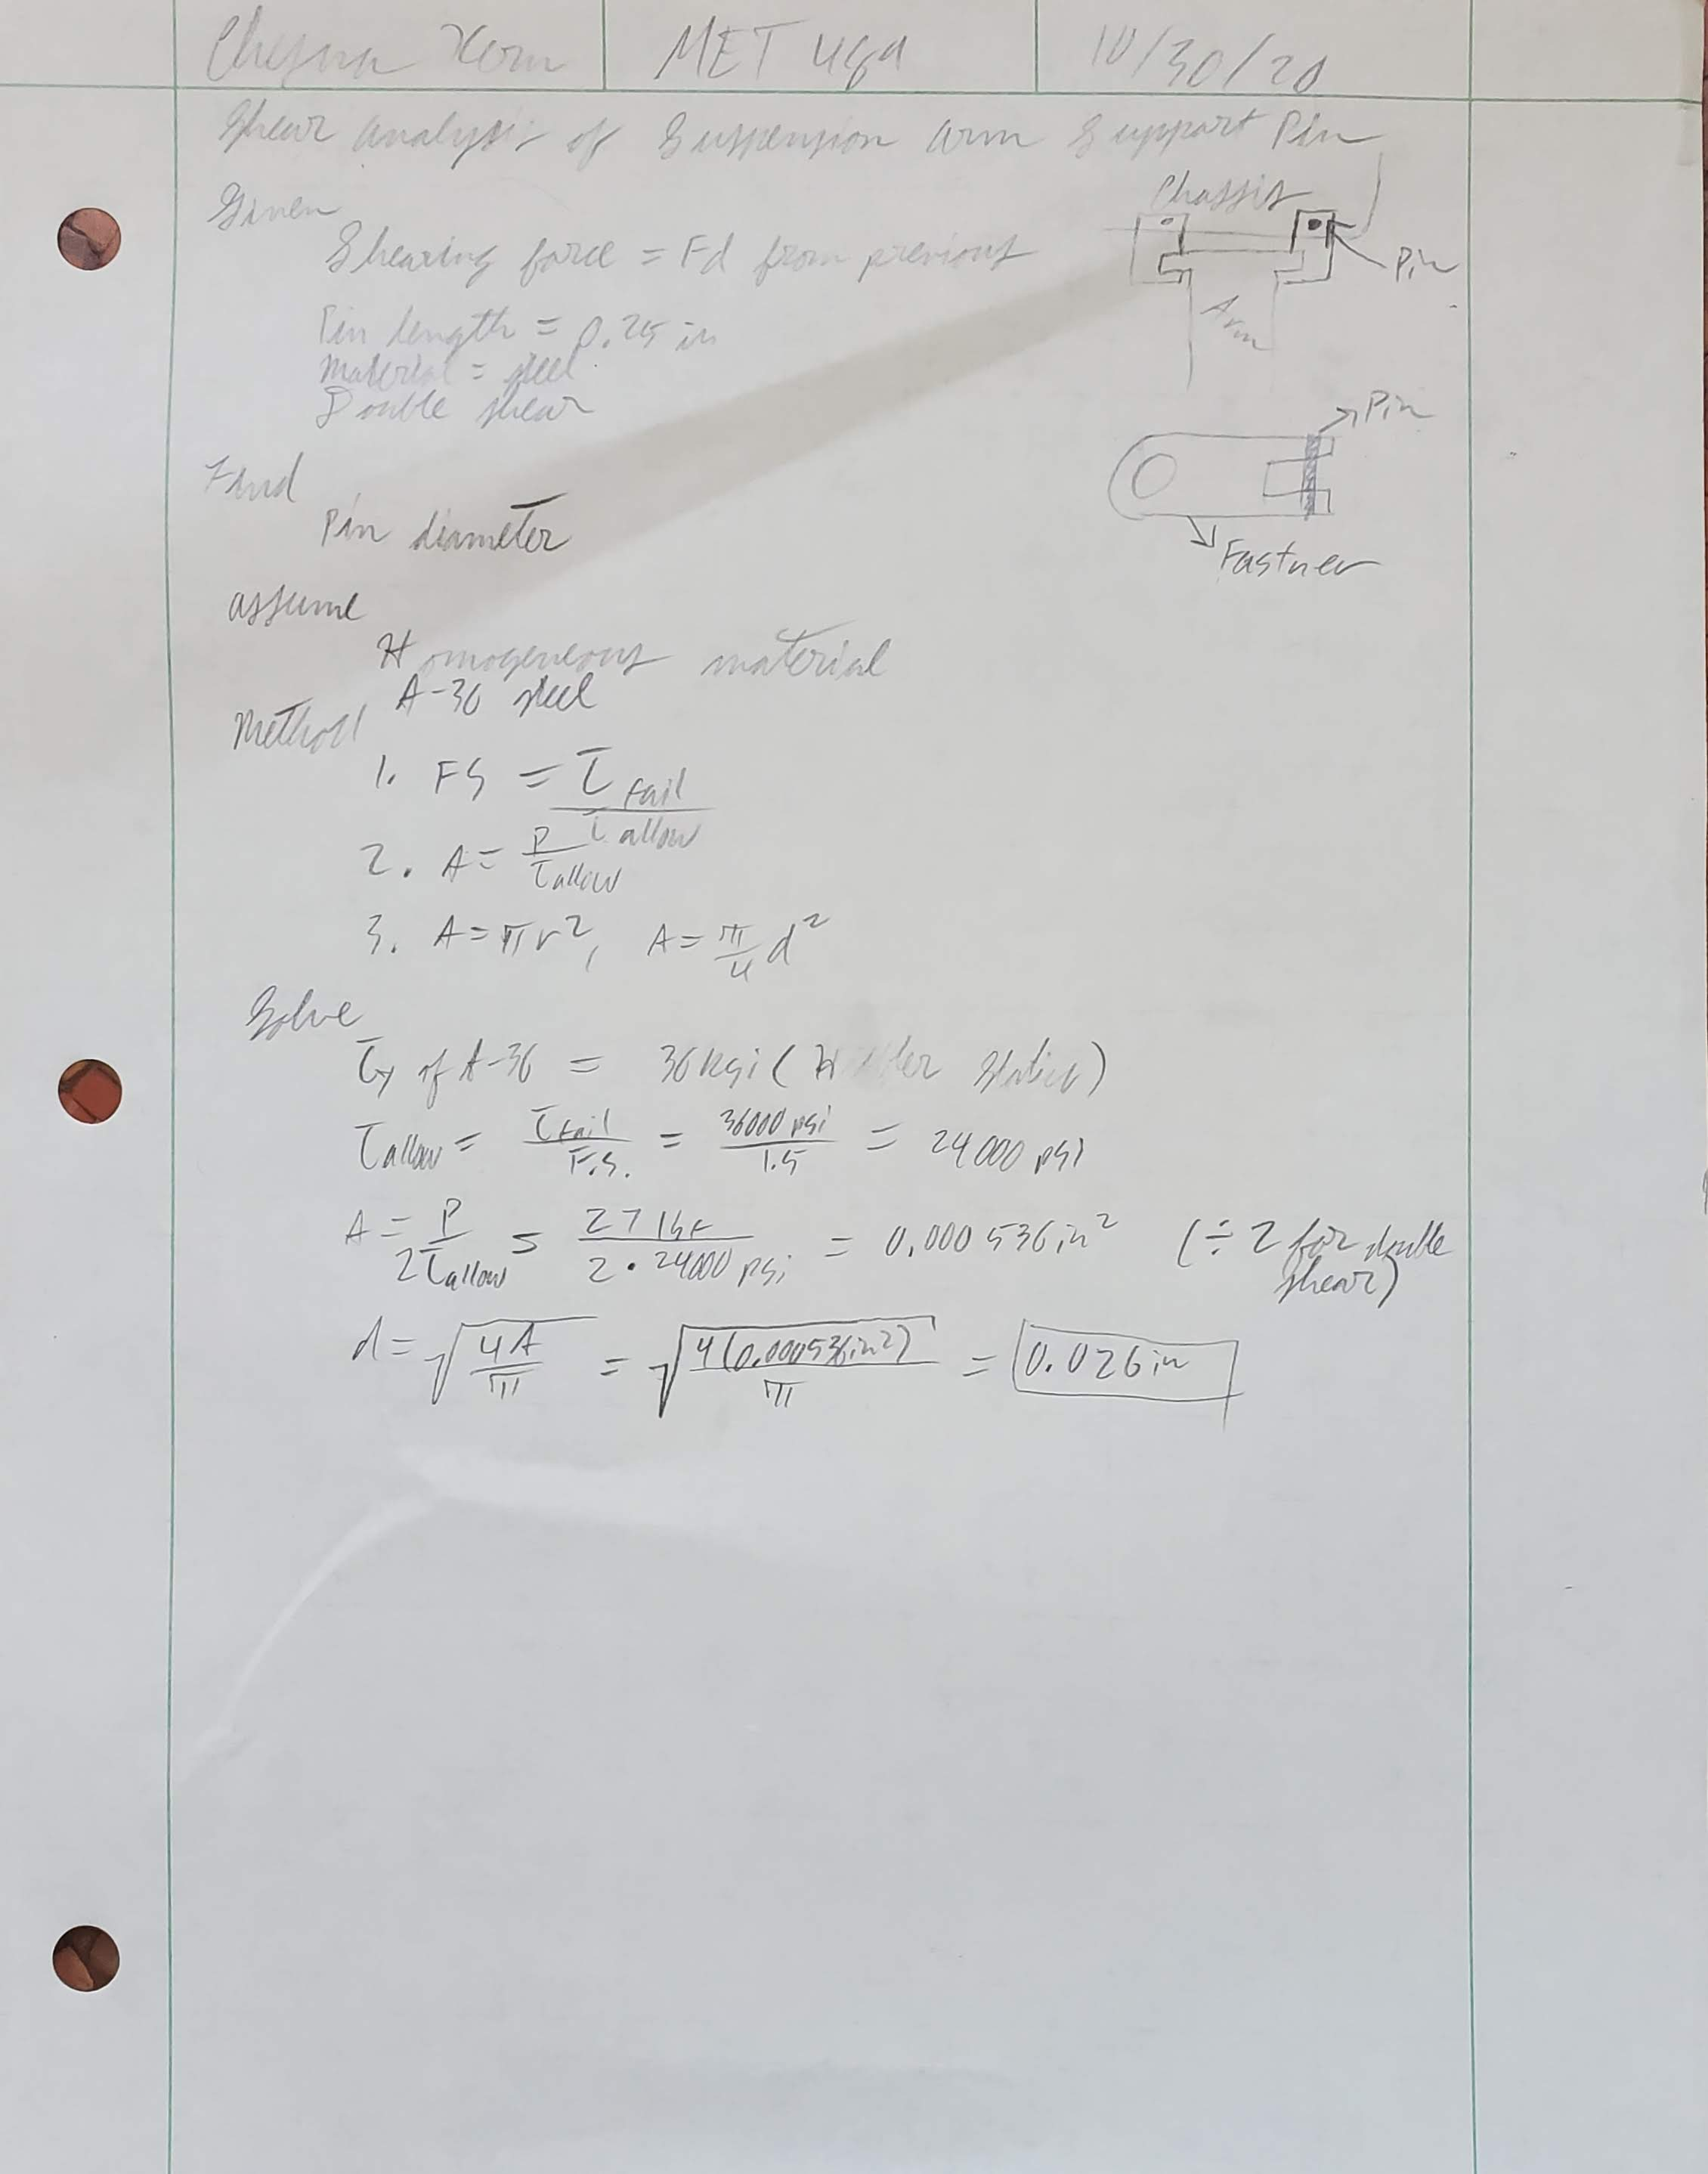 MET 489
10/30/20
Shear analysis of Suspension arm Support Pin
Given
Shearing force = Fd from previous
Pin length = 0.25 in
Material = steel
Double shear
Chassis
Pin
Arm
Pin
Fastner
Find
Pin diameter
Assume
Homogeneous material
A-36 steel
Method
1. FS = τ fail / τ allow
2. A = P / τ allow
3. A = πr², A = π/4 d²
Solve
τy of A-36 = 36 ksi ( Statics)
τ allow = τ fail / F.S. = 36000 psi / 1.5 = 24000 psi
A = P / 2 τ allow = 27 lbf / 2 • 24000 psi = 0.000536 in² (÷ 2 for double
shear)
d = √(4A / π) = √(4(0.000536 in²) / π) = 0.026 in